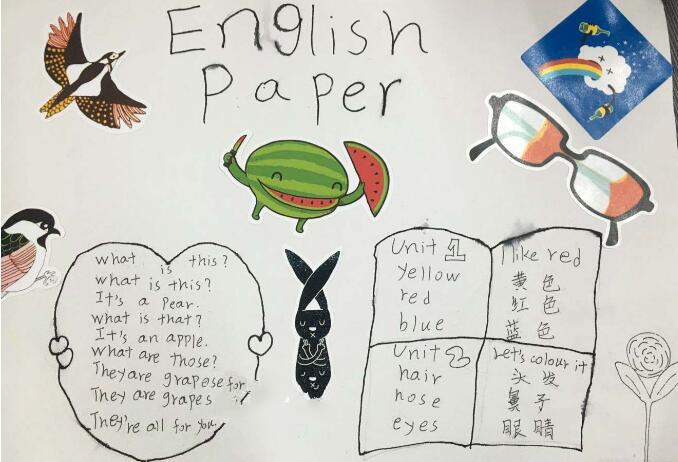 English
Paper
what is this?
what is this?
It's a pear.
what is that?
It's an apple.
what are those?
They are grapese for
They are grapes
They're all for you.
Unit 1
yellow
red
blue
I like red
黄色
红色
蓝色
Unit 2
hair
nose
eyes
Let's colour it
头发
鼻子
眼睛